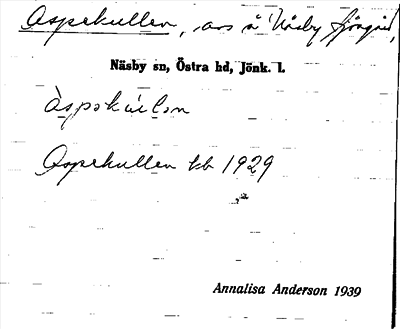 Aspekullen, avs å Näsby
Näsby sn, Östra hd, Jönk. l.
àspəkulən
Aspekullen kb 1929
Annalisa Anderson 1939